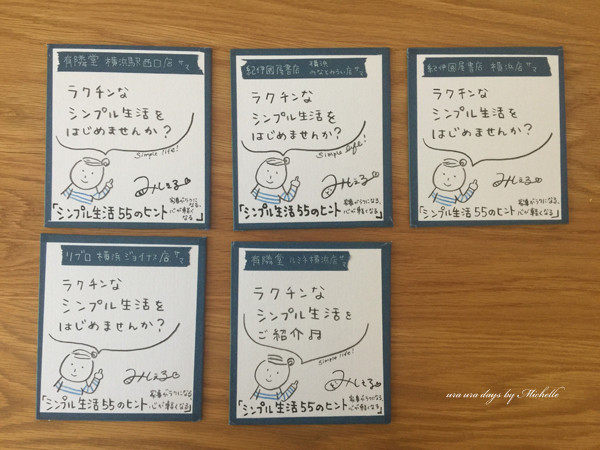 有隣堂 横浜駅西口店 サマ
ラクチンな
シンプル生活を
はじめませんか？
simple life!
みしぇる
家事がラクになる、
心が軽く
なる
「シンプル生活55のヒント」
紀伊國屋書店 横浜
みなとみらい店 サマ
ラクチンな
シンプル生活を
はじめませんか？
simple life!
みしぇる
家事がラクになる、
心が軽くなる
「シンプル生活55のヒント」
紀伊國屋書店 横浜店 サマ
ラクチンな
シンプル生活を
はじめませんか？
みしぇる
家事がラクになる、
心が軽くなる
「シンプル生活55のヒント」
リブロ 横浜 ジョイナス店 サマ
ラクチンな
シンプル生活を
はじめませんか？
みしぇる
家事がラクになる
心が軽くなる
「シンプル生活55のヒント」
有隣堂 ルミネ横浜店 サマ
ラクチンな
シンプル生活を
ご紹介♫
simple life!
みしぇる
家事がラクになる、
心が軽くなる
「シンプル生活55のヒント」
ura ura days by Michelle